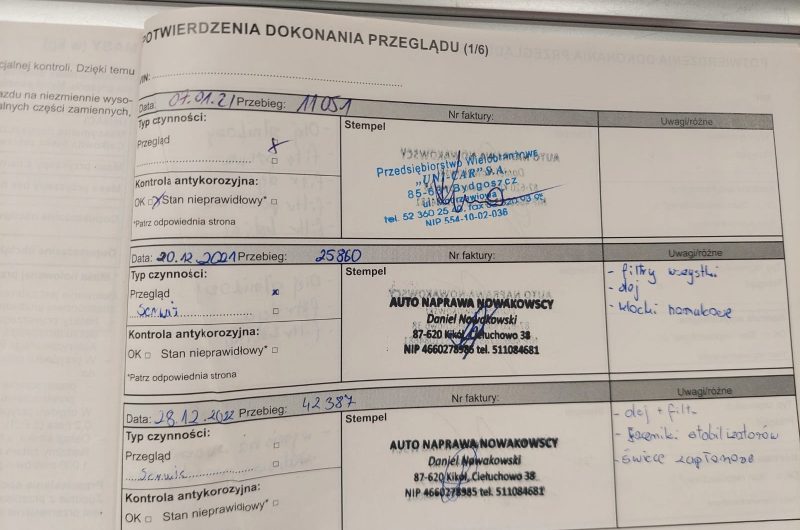 POTWIERDZENIA DOKONANIA PRZEGLĄDU (1/6)
cjalnej kontroli. Dzięki temu
VIN:
azdu na niezmiennie wyso-
alnych części zamiennych,
Data: 07.01.21 Przebieg: 11051
Nr faktury:
Uwagi/różne
Typ czynności:
Stempel
Przegląd
Przedsiębiorstwo Wielobranżowe
„UNI-CAR" S.A.
Bydgoszcz
tel. 52 360 25
NIP 554-10-02-036
Kontrola antykorozyjna:
OK Stan nieprawidłowy*
*Patrz odpowiednia strona
Data: 20.12.2021 Przebieg: 25860
Nr faktury:
Uwagi/różne
Typ czynności:
Stempel
Przegląd
Serwis
AUTO NAPRAWA NOWAKOWSCY
Daniel Nowakowski
87-620 Kikół, Ciełuchowo 38
NIP 4660278985 tel. 511084681
- filtry wszystki
- olej
- klocki hamukowe
Kontrola antykorozyjna:
OK Stan nieprawidłowy*
*Patrz odpowiednia strona
Data: 28.12.2022 Przebieg: 42387
Nr faktury:
Uwagi/różne
Typ czynności:
Stempel
Przegląd
Serwis
AUTO NAPRAWA NOWAKOWSCY
Daniel Nowakowski
87-620 Kikół, Ciełuchowo 38
NIP 4660278985 tel. 511084681
- olej + filtr
- łączniki stabilizatorów
- świece zapłonowe
Kontrola antykorozyjna:
OK Stan nieprawidłowy*